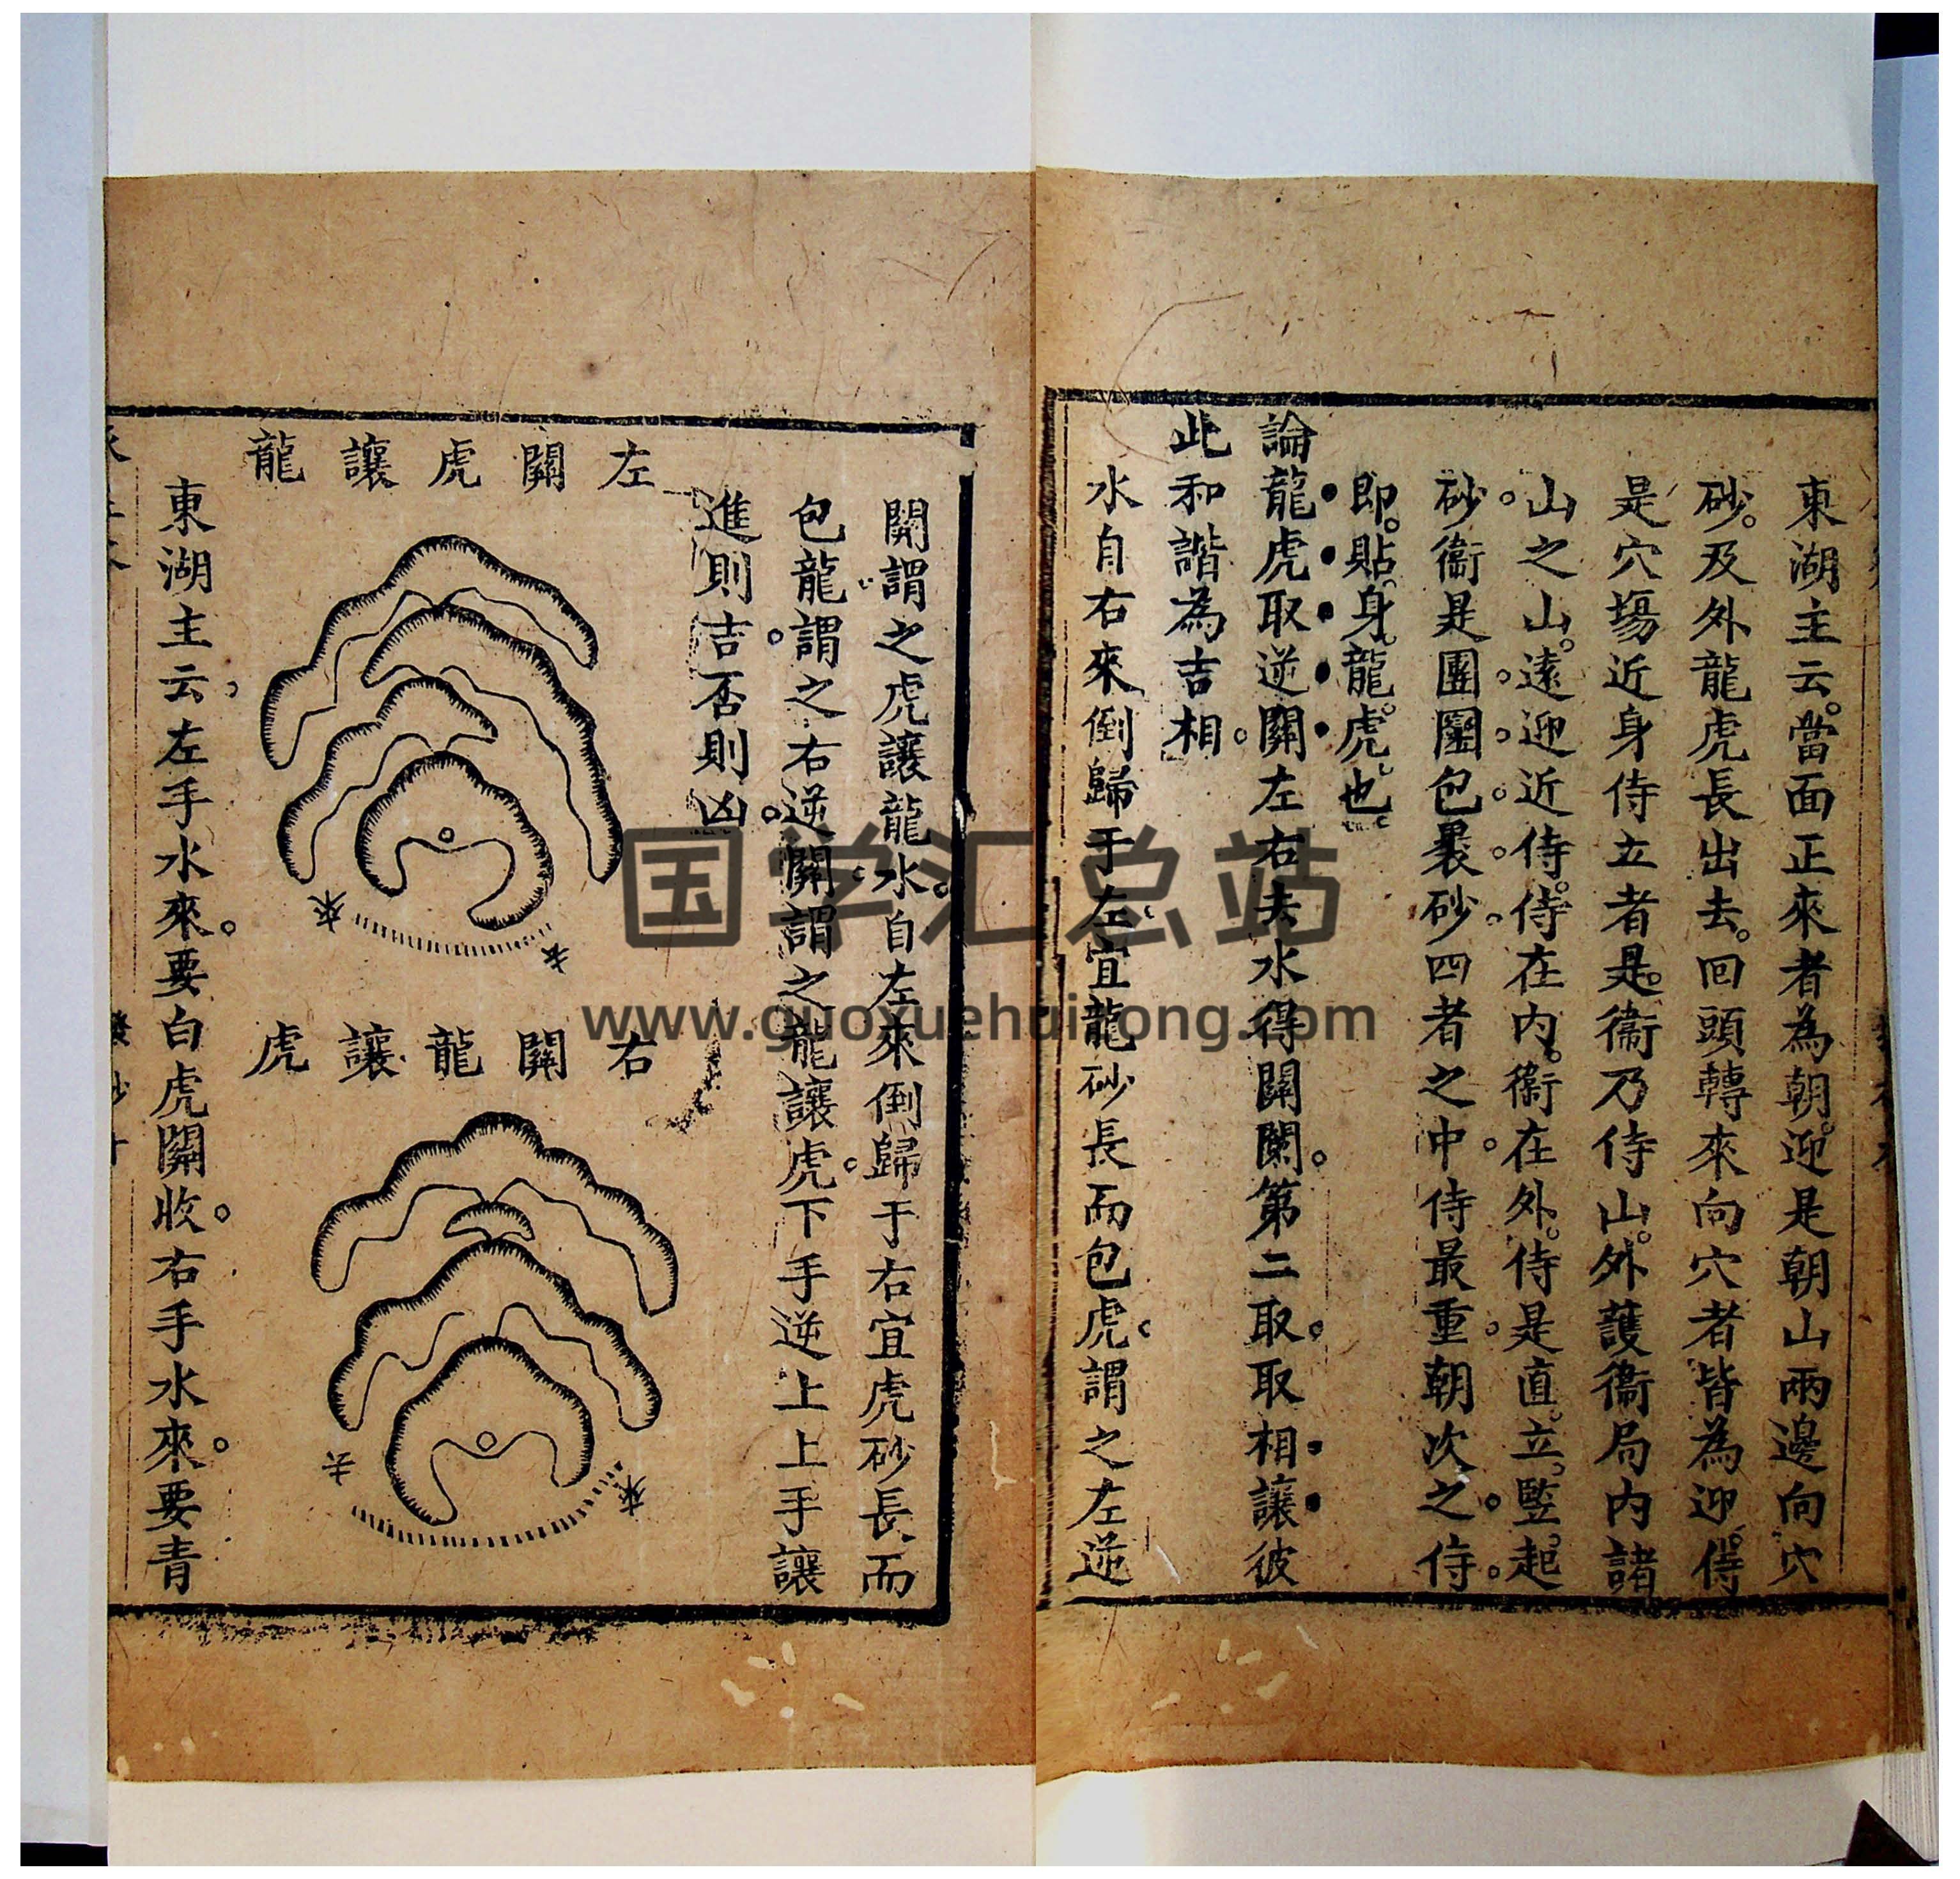 東湖主云。當面正來者為朝。迎是朝山兩邊向穴
砂。及外龍虎長出去。回頭轉來向穴者皆為迎。侍
是穴塲近身侍立者是。衞乃侍山。外護衞局内諸
山之山。遠迎近侍。侍在内。衞在外。侍是直立。監起
砂衞是團圞包褁砂四者之中侍最重朝次之侍
即貼身龍虎也
論龍虎取逆關左右去水得關闌。第二取取相讓彼
此和諧為吉相。
水自右來倒歸于左宜龍砂長而包虎。謂之左逆
關謂之虎讓龍水。自左來倒歸于右宜虎砂長而
包龍謂之右逆關謂之龍讓虎。下手逆上上手讓
進則吉。否則凶。
左關虎讓龍
來
去
右關龍讓虎
來
去
東湖主云左手水來。要白虎關收。右手水來。要青
国学汇总站
www.guoxuehuizong.com